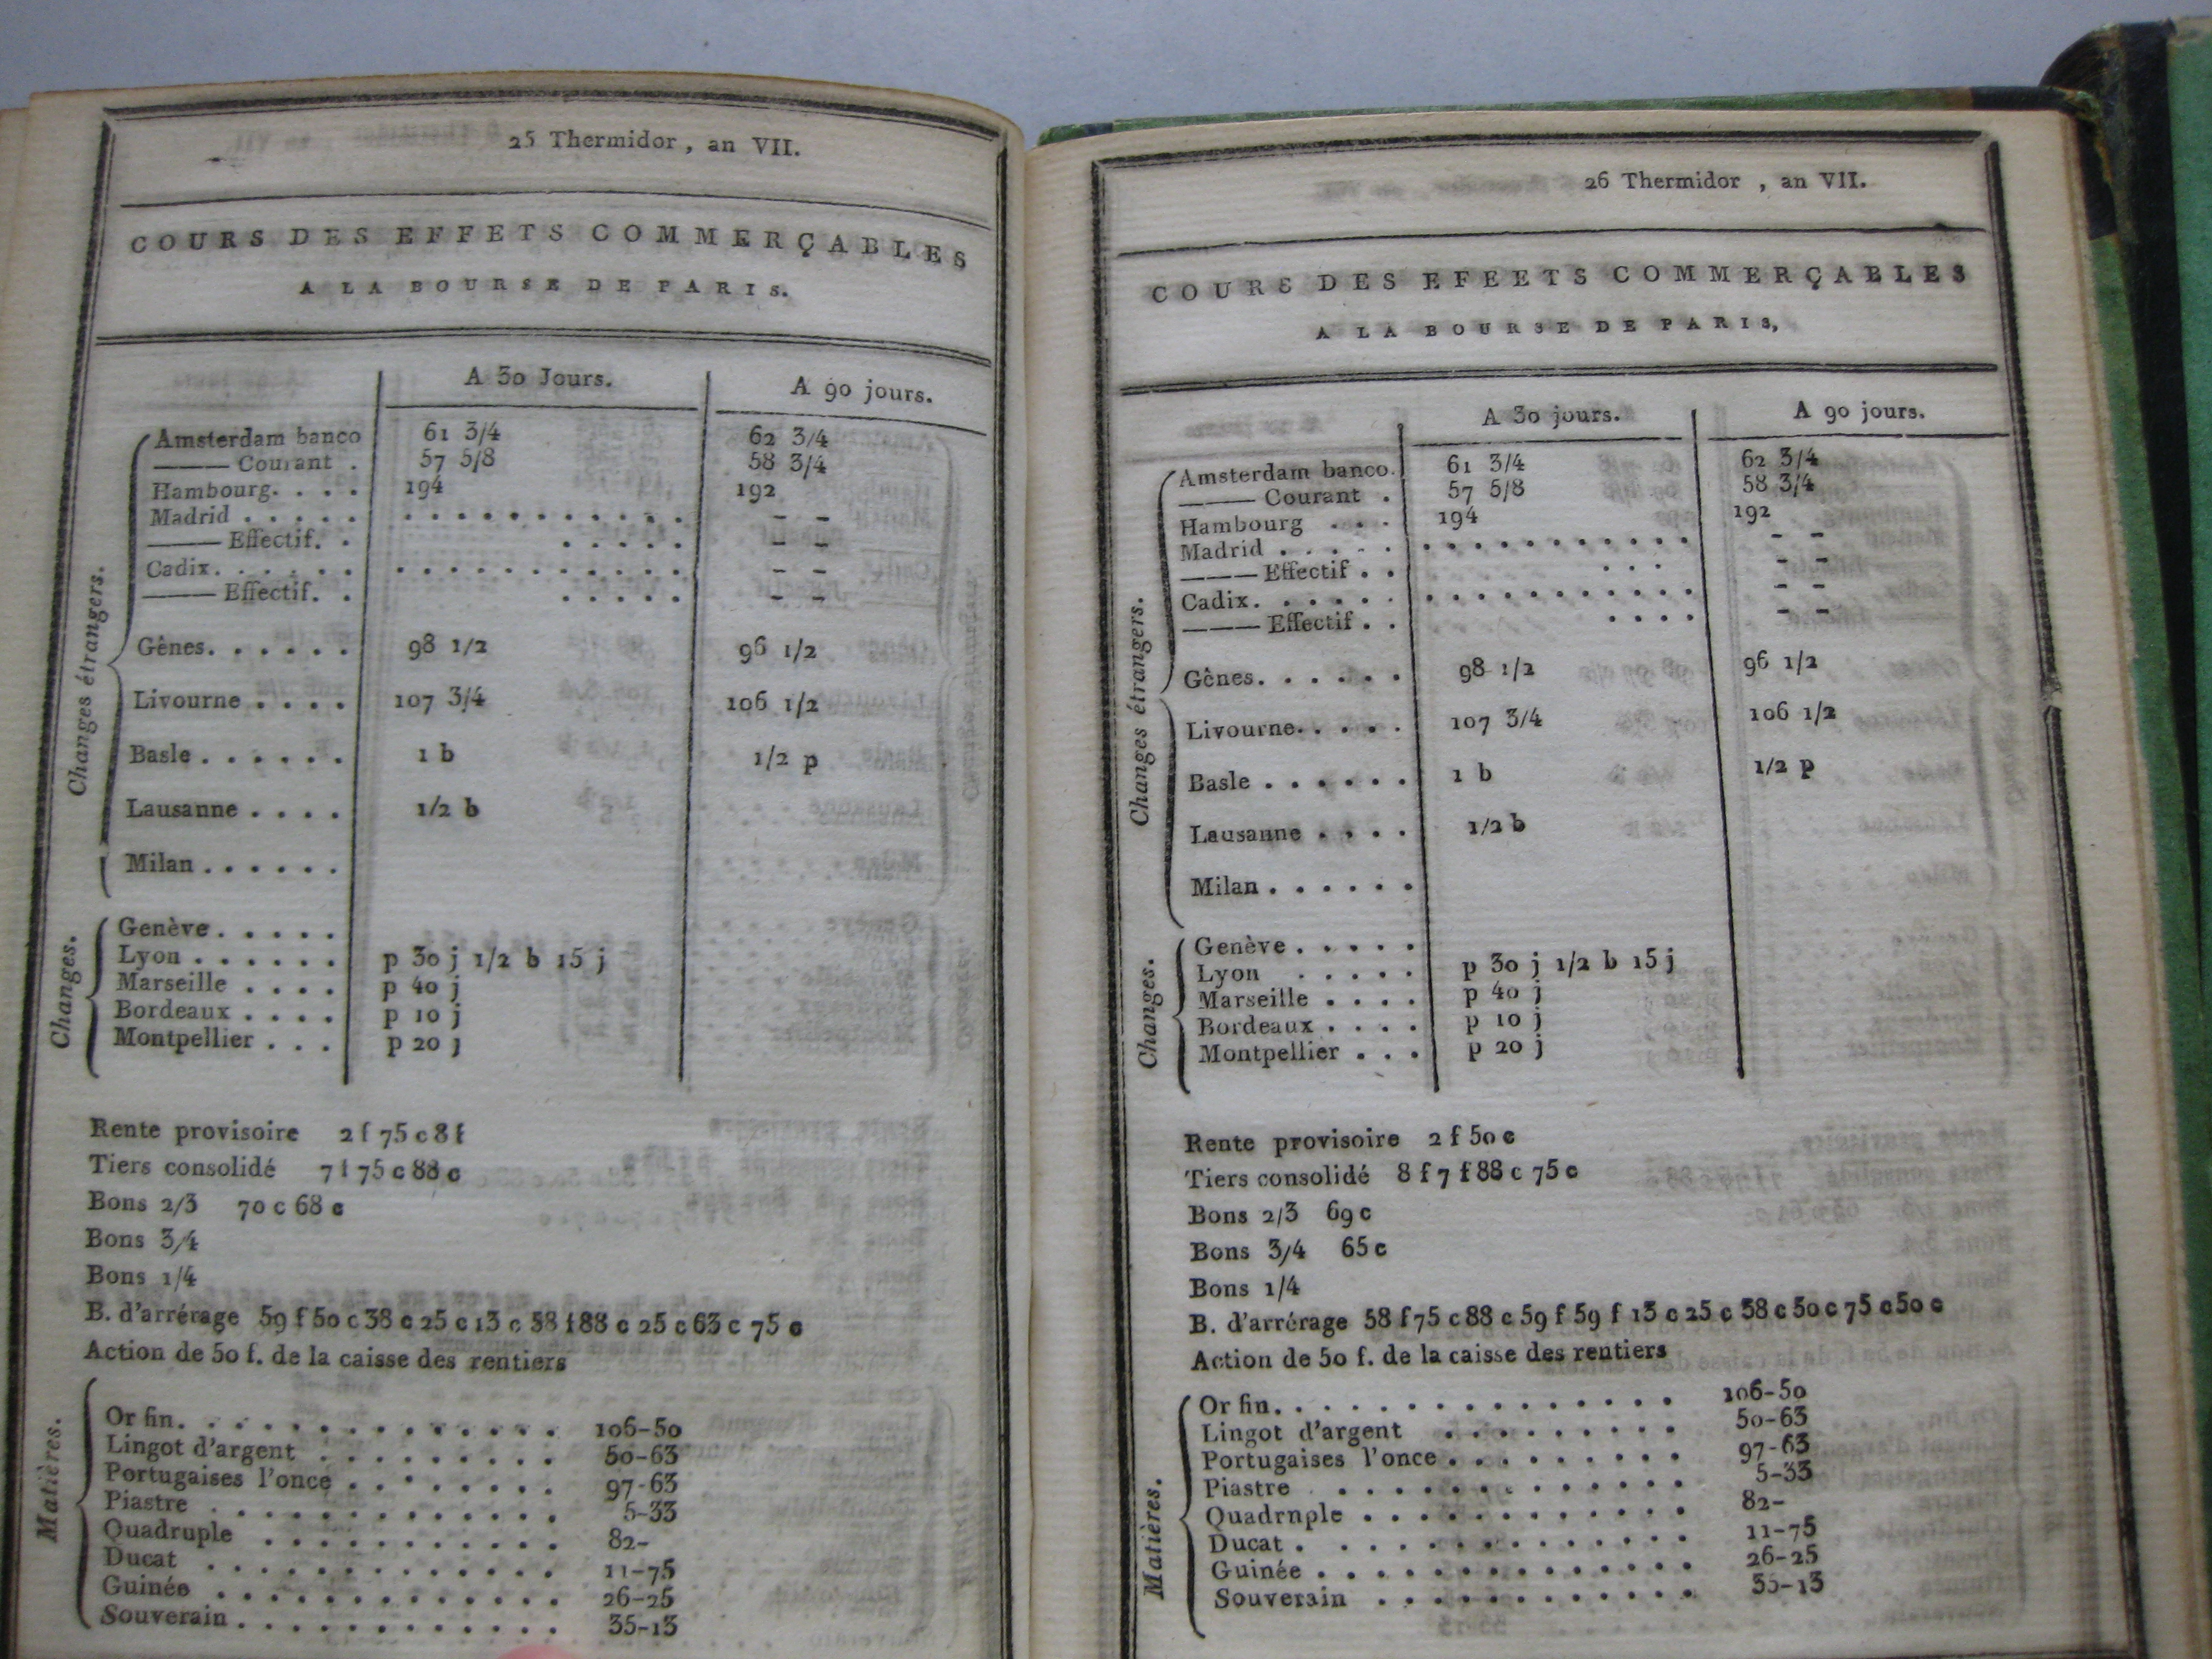 25 Thermidor, an VII.
COURS DES EFFETS COMMERÇABLES
A LA BOURSE DE PARIS.
A 30 Jours. A 90 jours.
Changes étrangers.
Amsterdam banco 61 3/4 62 3/4
——— Courant . 57 5/8 58 3/4
Hambourg. . . . 194 192
Madrid . . . . . . . . . . . . . . . . – –
——— Effectif. . . . . . . – –
Cadix. . . . . . . . . . . . . . . . . – –
——— Effectif. . . . . . . – –
Gênes. . . . . . 98 1/2 96 1/2
Livourne . . . . 107 3/4 106 1/2
Basle . . . . . . 1 b 1/2 p
Lausanne . . . . 1/2 b
Milan . . . . . .
Changes.
Genève . . . . .
Lyon . . . . . . p 30 j 1/2 b 15 j
Marseille . . . . p 40 j
Bordeaux . . . . p 10 j
Montpellier . . . p 20 j
Rente provisoire 2 f 75 c 8 f
Tiers consolidé 7 f 75 c 88 c
Bons 2/3 70 c 68 c
Bons 3/4
Bons 1/4
B. d'arrérage 59 f 50 c 38 c 25 c 13 c 58 f 88 c 25 c 63 c 75 c
Action de 50 f. de la caisse des rentiers
Matières.
Or fin. . . . . . . . . . . . . . 106-50
Lingot d'argent . . . . . . . . . 50-63
Portugaises l'once . . . . . . . . 97-63
Piastre . . . . . . . . . . . . . 5-33
Quadruple . . . . . . . . . . . 82-
Ducat . . . . . . . . . . . . . 11-75
Guinée . . . . . . . . . . . . . 26-25
Souverain . . . . . . . . . . . . 35-13
26 Thermidor , an VII.
COURS DES EFEETS COMMERÇABLES
A LA BOURSE DE PARIS,
A 30 jours. A 90 jours.
Changes étrangers.
Amsterdam banco. 61 3/4 62 3/4
——— Courant . 57 5/8 58 3/4
Hambourg . . . 194 192
Madrid . . . . . . . . . . . . . . . . – –
——— Effectif . . . . . – –
Cadix. . . . . . . . . . . . . . . . . – –
——— Effectif . . . . . . – –
Gênes. . . . . . 98 1/2 96 1/2
Livourne. . . . . 107 3/4 106 1/2
Basle . . . . . . 1 b 1/2 p
Lausanne . . . . 1/2 b
Milan . . . . . .
Changes.
Genève . . . . .
Lyon . . . . . p 30 j 1/2 b 15 j
Marseille . . . . p 40 j
Bordeaux . . . . p 10 j
Montpellier . . . p 20 j
Rente provisoire 2 f 50 c
Tiers consolidé 8 f 7 f 88 c 75 c
Bons 2/3 69 c
Bons 3/4 65 c
Bons 1/4
B. d'arrérage 58 f 75 c 88 c 59 f 59 f 13 c 25 c 38 c 50 c 75 c 50 c
Action de 50 f. de la caisse des rentiers
Matières.
Or fin. . . . . . . . . . . . . . . 106-50
Lingot d'argent . . . . . . . . . 50-63
Portugaises l'once . . . . . . . . . 97-63
Piastre . . . . . . . . . . . . . 5-33
Quadrnple . . . . . . . . . . . . 82-
Ducat . . . . . . . . . . . . . 11-75
Guinée . . . . . . . . . . . . . . 26-25
Souverain . . . . . . . . . . . . 35-13